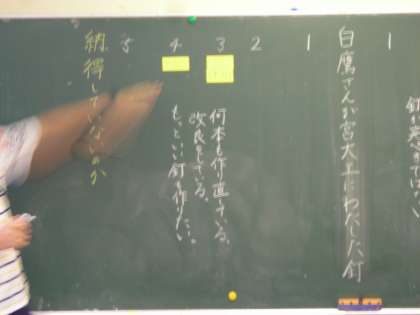 1
白鷹さんが宮大工にわたした釘
1
2
3
何本も作り直している。
改良をしている。
4
もっといい釘を作りたい。
5
納得していないのか